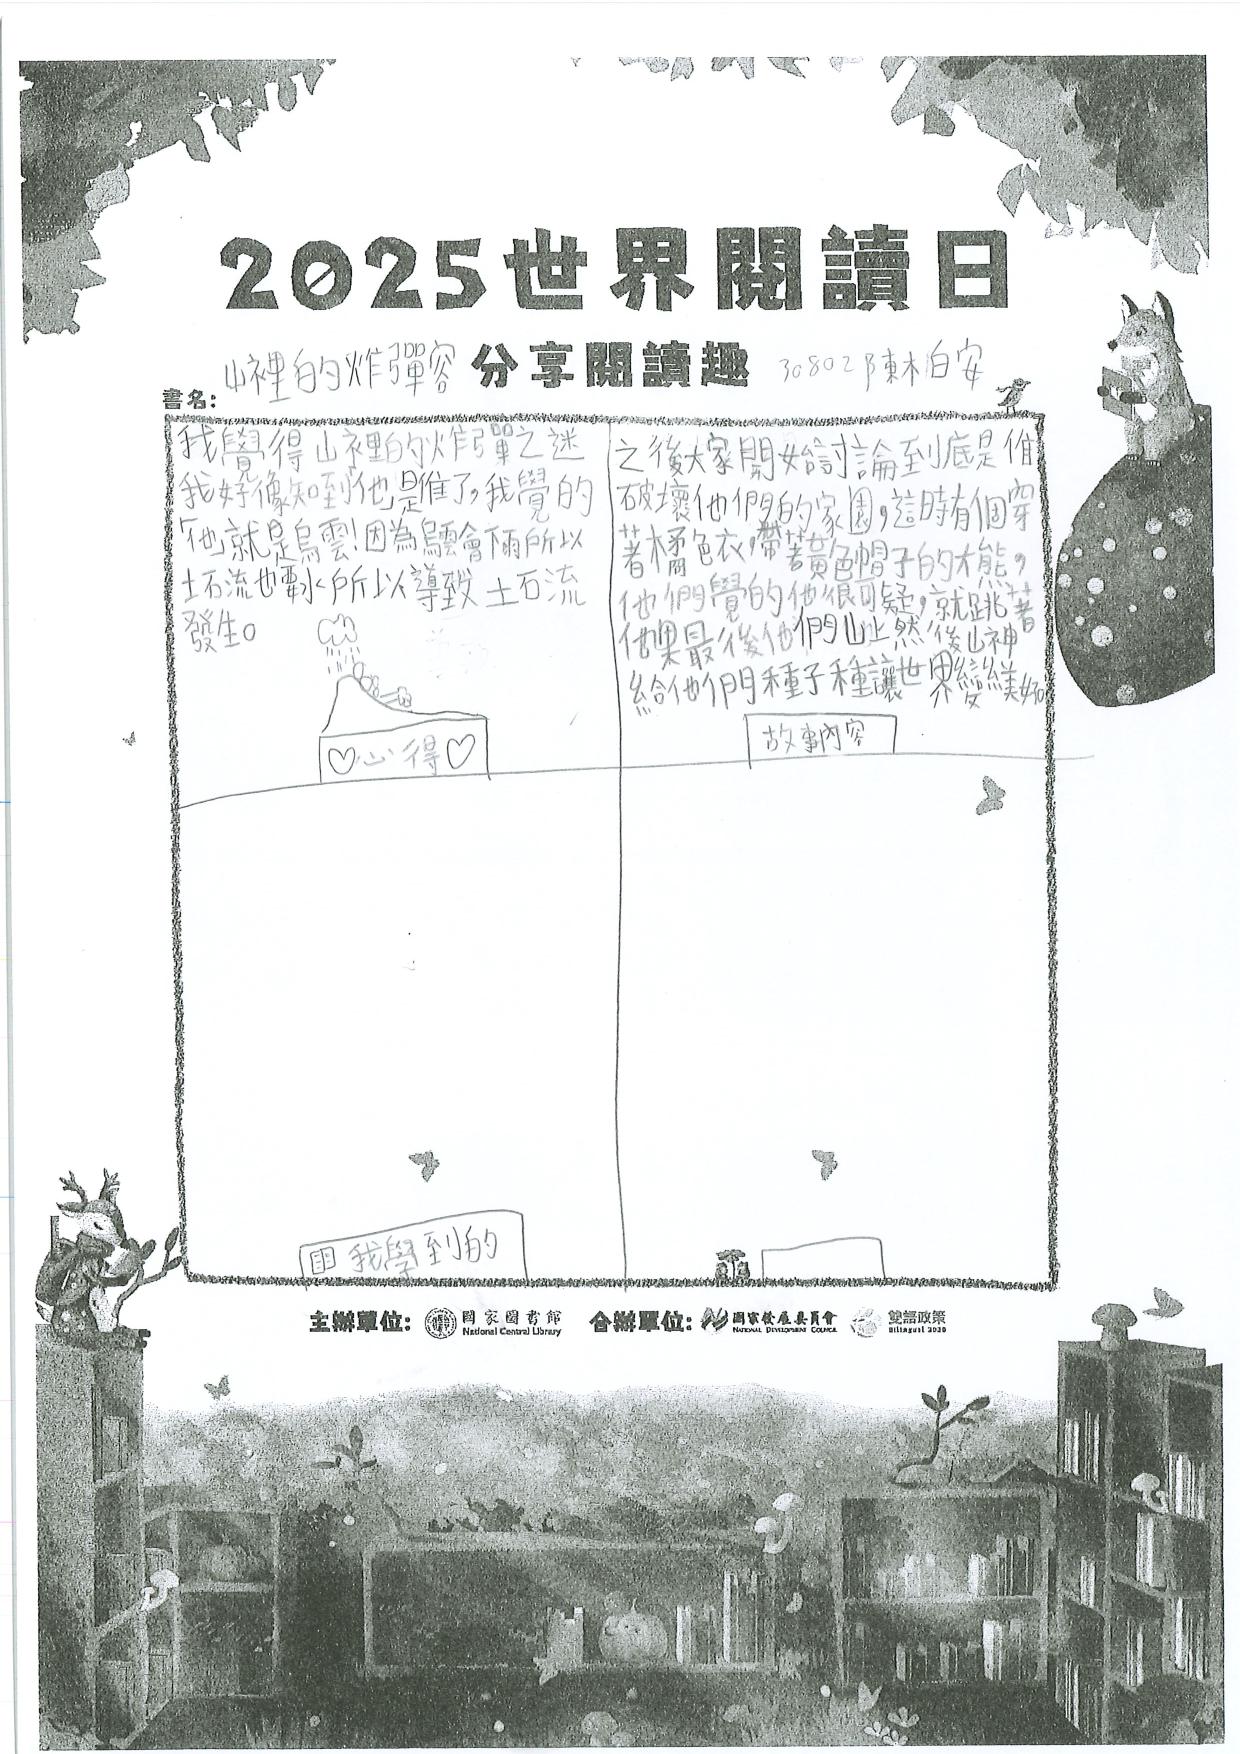 2025世界閱讀日
山裡的炸彈容 分享閱讀趣 30802陳柏安
書名:
我覺得山裡的炸彈之迷
我好像知到他是誰了,我覺的
他就是烏雲!因為烏雲會雨所以
土石流也要水所以導致土石流
發生。
心得
之後大家開始討論到底是誰
破壞他們的家園,這時有個穿
著橘色衣,帶著黃色帽子的大熊,
他們覺的他很可疑,就跳著
他果最後他們山上然後山神
給他們種子種讓世界變美好。
故事內容
我學到的
主辦單位: 國家圖書館 National Central Library 合辦單位: 國家發展委員會 NATIONAL DEVELOPMENT COUNCIL 雙語政策 Bilingual 2030